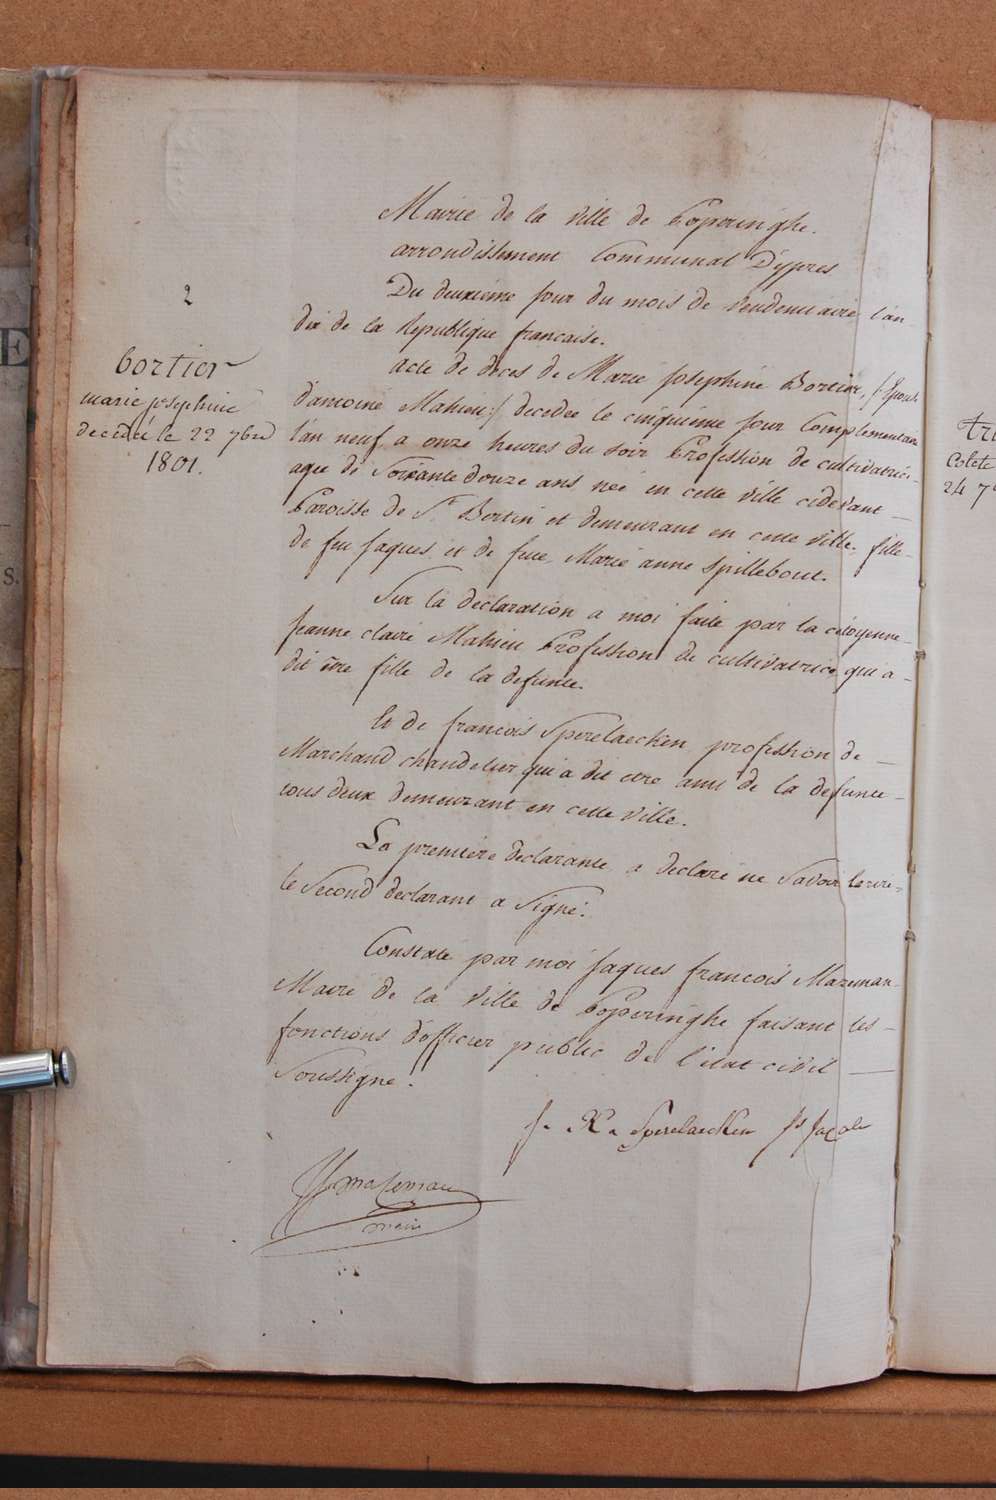 2
bortier
marie josephine
decedée le 22 7bre
1801.
Mairie de la ville de Poperinghe.
arrondissement Communal D'ypres
Du deuxieme jour du mois de Vendemiaire l'an
dix de la Republique francaise.
Acte de deces de Marie Josephine Bortier, /:Epouse
d'antoine Mahieu:/ decedée le cinquieme jour Complementaire
l'an neuf a onze heures du soir Profession de cultivatrice
agee de Soixante douze ans née en cette ville cidevant
Paroisse de St Bertin et demeurant en cette ville, fille
de feu Jaques et de feue Marie anne Spillebout.
Sur la declaration a moi faite par la citoyenne
Jeanne claire Mahieu Profession de cultivatrice qui a
dit être fille de la defunte.
Et de francois Sperelaecken profession de
Marchand chandelier qui a dit etre ami de la defunte
tous deux demeurant en cette ville.
La premiere declarante a declaré ne Savoir Ecrire
le Second declarant a Signé.
Constaté par moi Jaques francois Mazeman
Maire de la ville de Poperinghe faisant les
fonctions d'officier public de l'état civil
Soussigné.
Sperelaecken
Mazeman
maire
Colete
24 7